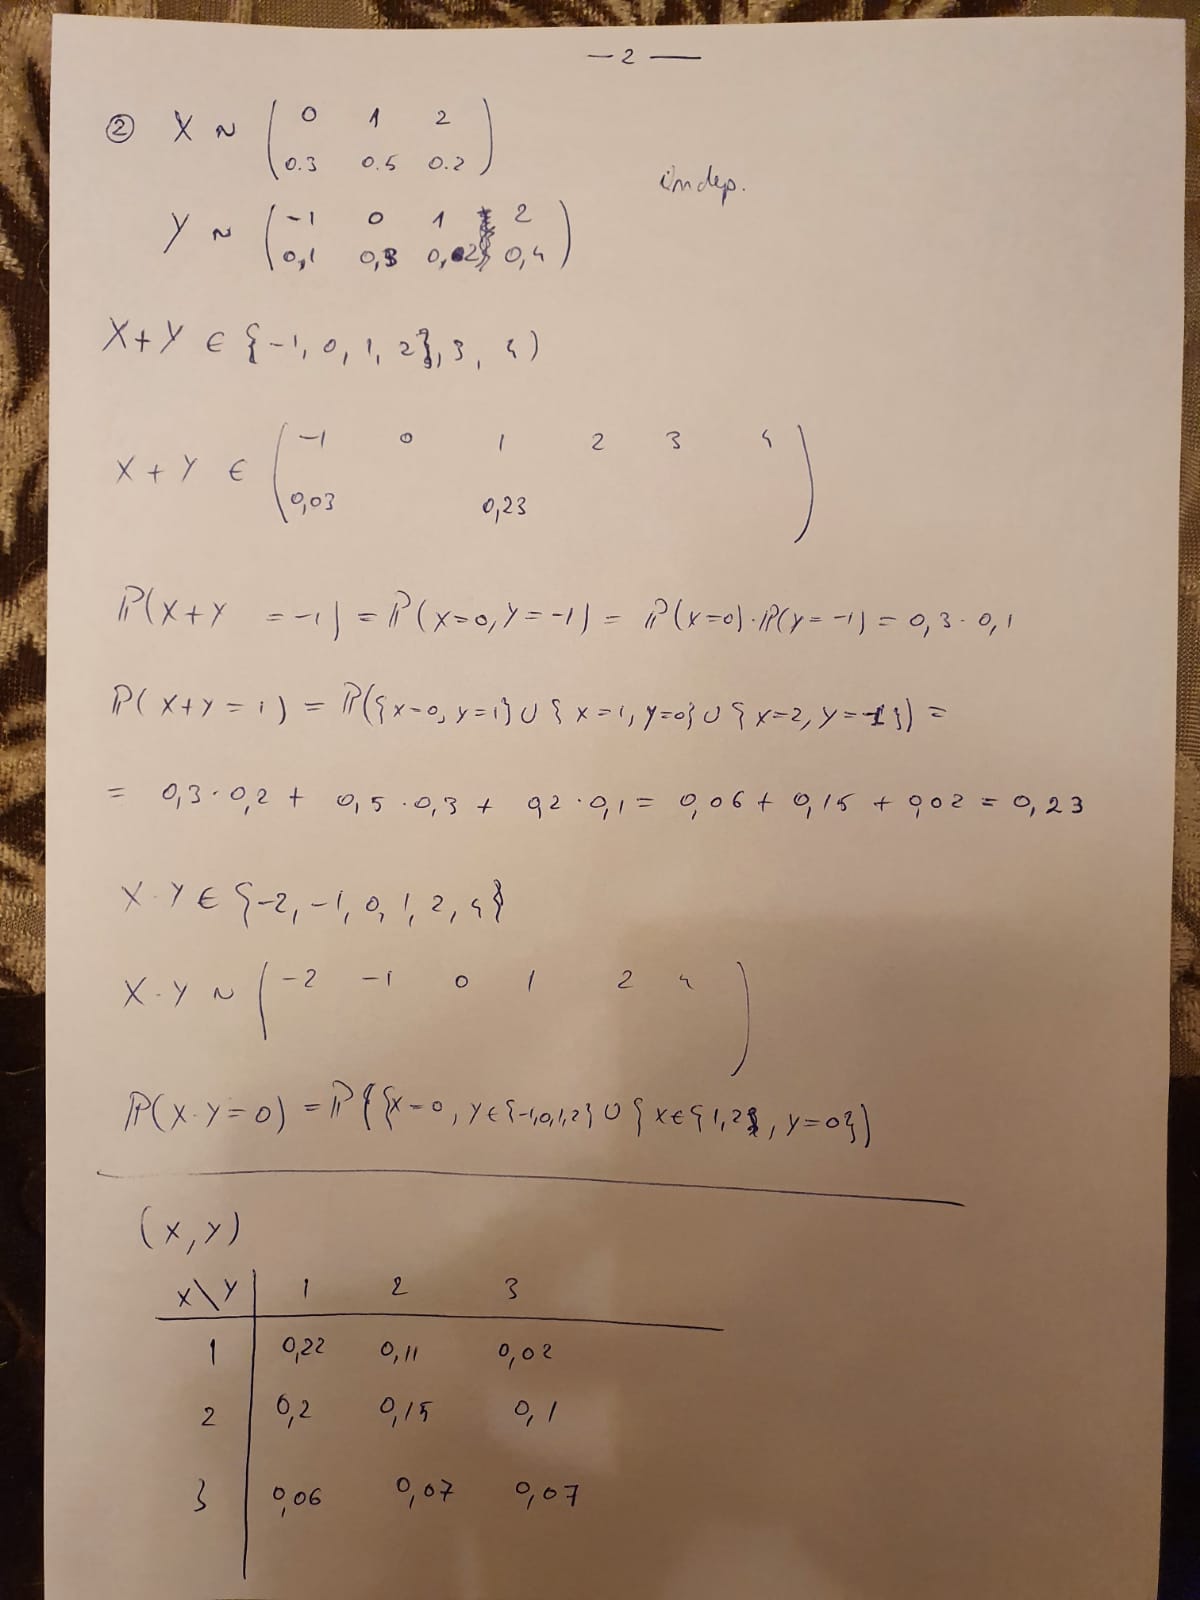 — 2 —
② X ~ ( 0 1 2
0.3 0.5 0.2 )
indep.
Y ~ ( -1 0 1 2
0,1 0,3 0,2 0,4 )
X+Y ∈ {-1, 0, 1, 2}, 3, 4)
X + Y ∈ ( -1 0 1 2 3 4
0,03 0,23 )
P(X+Y = -1) = P(X=0, Y=-1) = P(X=0)·P(Y=-1) = 0,3 · 0,1
P(X+Y=1) = P({X=0, Y=1} ∪ {X=1, Y=0} ∪ {X=2, Y=-1}) =
= 0,3 · 0,2 + 0,5 · 0,3 + 0,2 · 0,1 = 0,06 + 0,15 + 0,02 = 0,23
X·Y ∈ {-2, -1, 0, 1, 2, 4}
X·Y ~ ( -2 -1 0 1 2 4 )
P(X·Y=0) = P({X=0, Y∈{-1,0,1,2} ∪ {X∈{1,2}, Y=0})
(X,Y)
X\Y 1 2 3
1 0,22 0,11 0,02
2 0,2 0,15 0,1
3 0,06 0,07 0,07